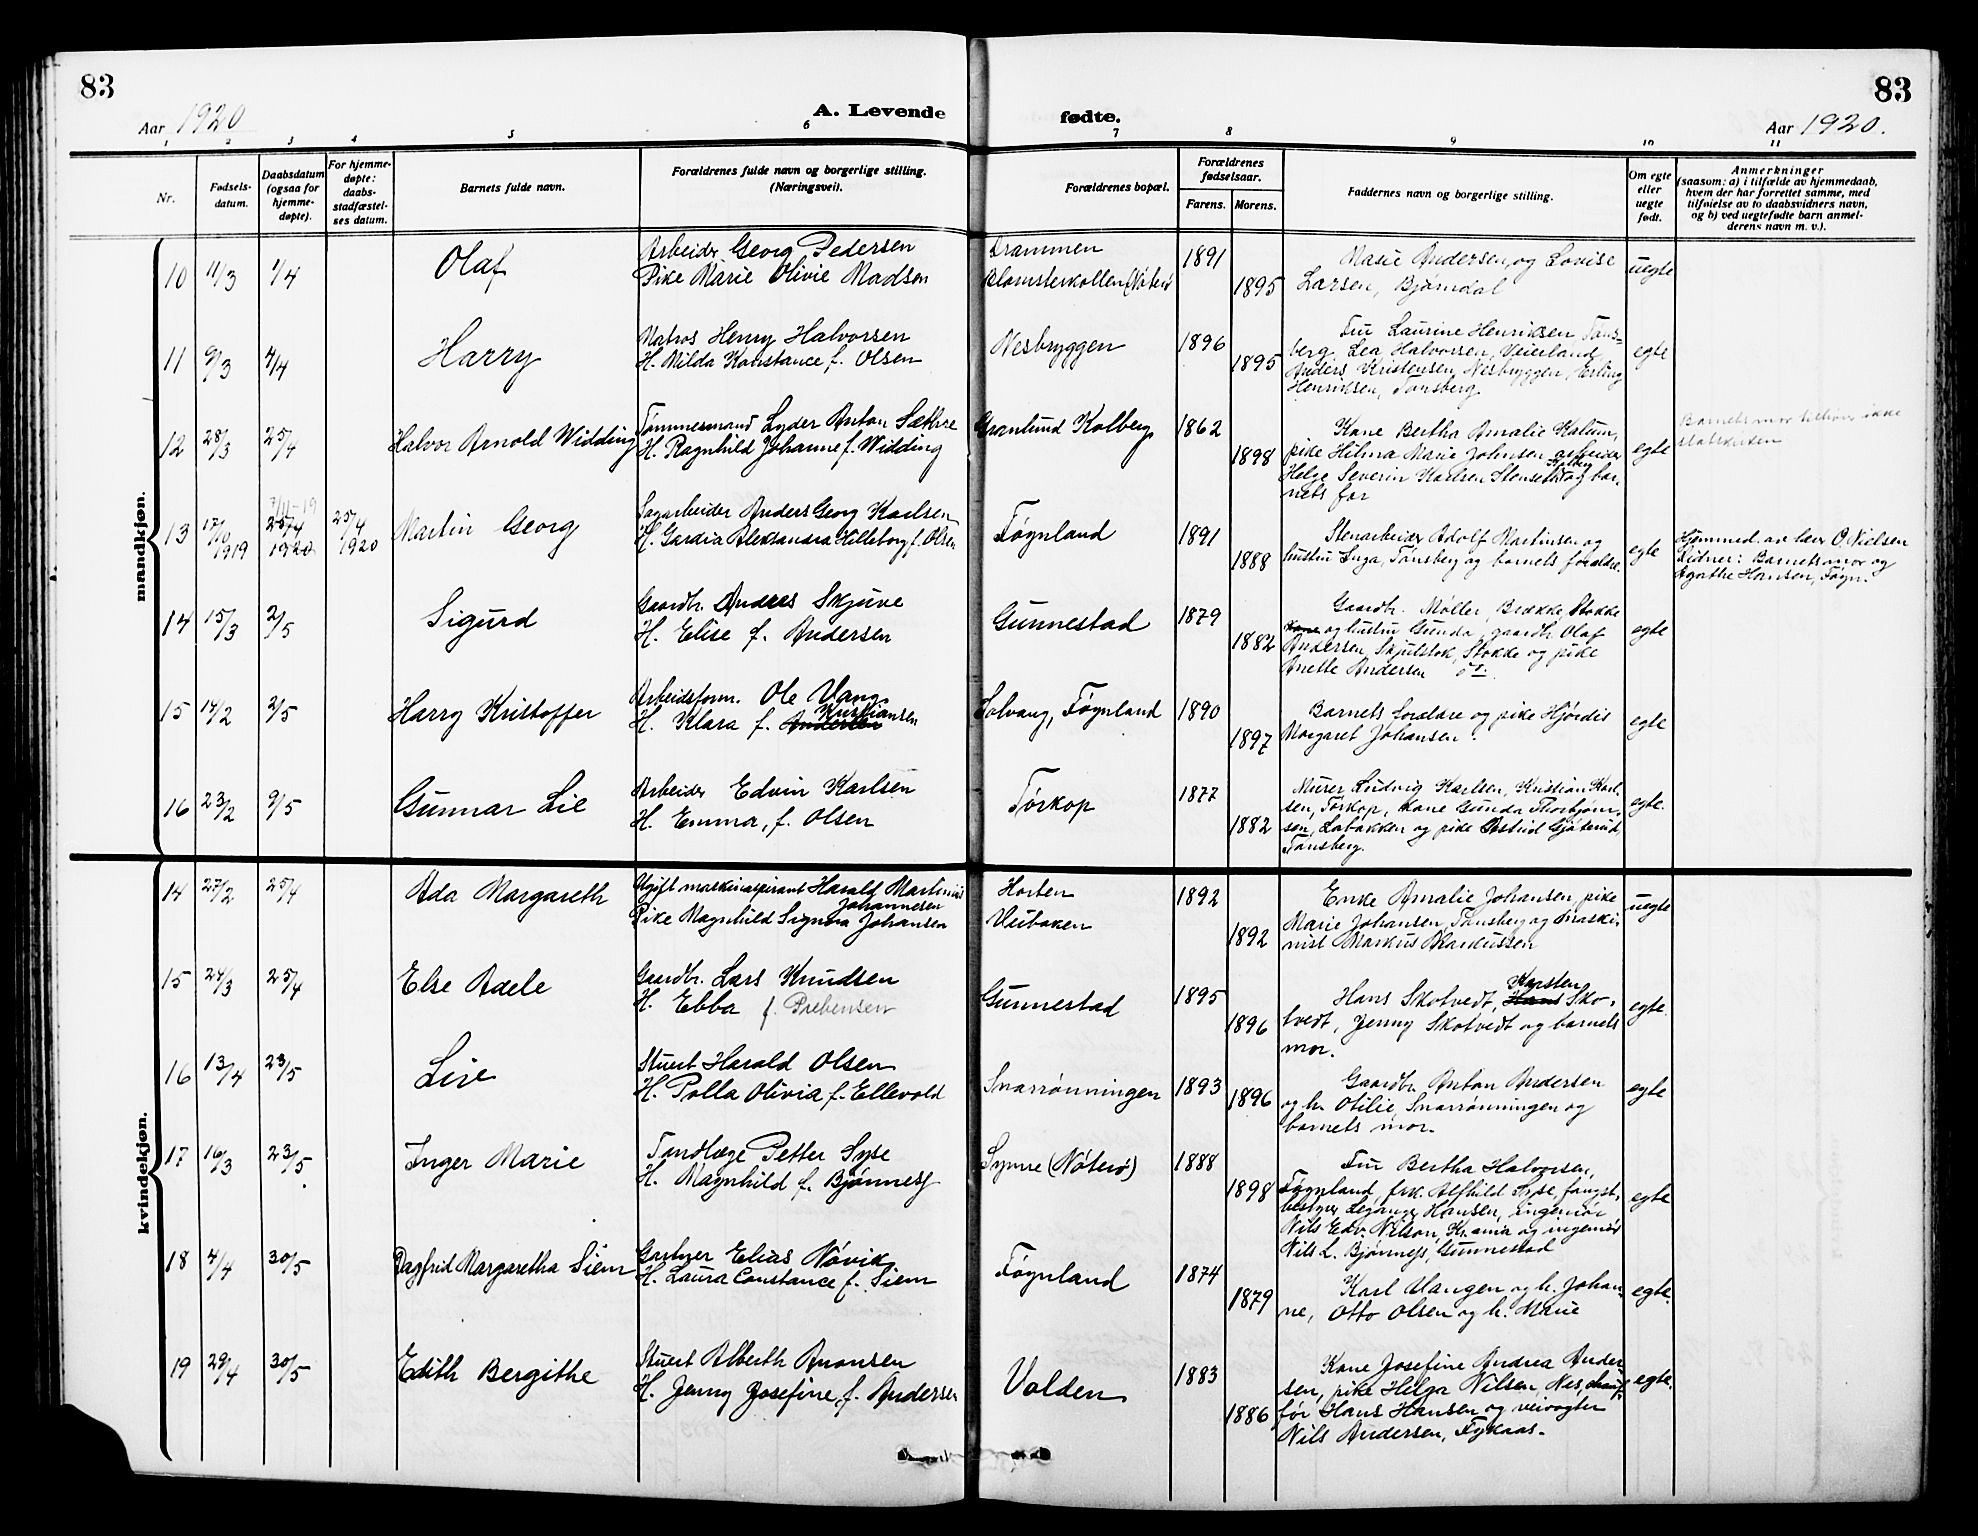 83
A. Levende
fødte.
83
Aar 1920
Aar 1920.
1 2 3 4 5 6 7 8 9 10 11
Nr.
Fødsels-
datum.
Daabsdatum
(ogsaa for
hjemme-
døpte).
For hjemme-
døpte:
daabs-
stadfæstel-
ses datum.
Barnets fulde navn.
Forældrenes fulde navn og borgerlige stilling.
(Næringsvei).
Forældrenes bopæl.
Forældrenes
fødselsaar.
Farens. Morens.
Faddernes navn og borgerlige stilling.
Om egte
eller
uegte
født.
Anmerkninger
(saasom: a) i tilfælde av hjemmedaab,
hvem der har forrettet samme, med
tilføielse av to daabsvidners navn,
og b) ved uegtefødte barn anmel-
derens navn m. v.).
mandkjøn.
10 11/3 1/4 Olaf
Arbeider Georg Pedersen
Pike Marie Olivie Madsen
Drammen
Blomsterkollen (Nøterø
1891
1895
Marie Andersen, og Lovise
Larsen, Bjørndal
uegte
11 9/3 4/4 Harry
Matros Henry Halvorsen
H. Milda Konstance f. Olsen
Nesbryggen
1896
1895
Fru Laurine Henriksen, Tøns-
berg, Lea Halvorsen, Veierland,
Anders Kristensen, Nesbryggen, Erling
Henriksen, Tønsberg.
egte
12 28/3 25/4 Halvor Arnold Widding
Tømmermand Lyder Anton Sæthre
H. Ragnhild Johanne f. Widding
Granlund Kolberg
1862
1898
Kone Bertha Amalie Kalum,
pike Hilma Marie Johnsen, arbeider
Helge Severin Karlsen Stenseth og bar-
nets far
egte
Barnets mor tilhører ikke
statskirken
13 17/10 1919 7/11-19 25/4 1920 25/4 1920 Martin Georg
Sagarbeider Anders Georg Karlsen
H. Gardia Aleksandra Helleborg f. Olsen
Føynland
1891
1888
Stenarbeider Adolf Martinsen og
hustru Inga, Tønsberg og barnets forældre.
egte
Hjemmed. av lær O. Nielsen
Vidner: Barnets mor og
Agathe Hansen, Føyn.
14 15/3 2/5 Sigurd
Gaardbr. Andreas Skjuve
H. Elise f. Andersen
Gunnestad
1879
1882
Gaardbr. Møller, Brække, Stokke
Kone og hustru Gunda, gaardbr. Olaf
Andersen, Skjulstok, Stokke og pike
Anette Andersen
egte
15 14/2 2/5 Harry Kristoffer
Arbeidsform. Ole Vang
H. Klara f. Andersen Kristiansen
Solvang, Føynland
1890
1897
Barnets forældre og pike Hjørdis
Margaret Johansen.
egte
16 23/2 9/5 Gunnar Lie
Arbeider Edvin Karlsen
H. Emma, f. Olsen
Tørkop
1877
1882
Murer Ludvig Karlsen, Kristian Karl-
sen, Tørkop, kone Gunda Thorbjørn-
sen, Labakken og pike Astrid Gjøterud,
Tønsberg.
egte.
kvindekjøn.
14 27/2 25/4 Ada Margareth
Ugift maskinaspirant Harald Martinius
Johannesen
Pike Magnhild Signora Johansen
Horten
Ulibaken
1892
1892
Enke Amalie Johansen, pike
Marie Johansen, Tønsberg og maski-
nist Markus Markussen
uegte
15 24/3 25/4 Else Adele
Gaardbr. Lars Knudsen
H. Ebba f. Prebensen
Gunnestad
1895
1896
Hans Skotvedt, Hans Karsten Sko-
tvedt, Jenny Skotvedt og barnets
mor.
egte.
16 13/4 23/5 Lise
Stuert Harald Olsen
H. Polla Olivia f. Ellevold
Snarrønningen
1893
1896
Gaardbr. Anton Andersen
og h. Otilie, Snarrønningen og
barnets mor.
egte
17 16/3 23/5 Inger Marie
Tandlæge Petter Syse
H. Magnhild f. Bjønness
Synne (Nøterø)
1888
1898
Fru Bertha Halvorsen,
Føynland, frk. Alfhild Syse, fangst-
bestyrer Leganger Hansen, ingeniør
Nils Edv. Nilson, Kr.ania og ingeniør
Nils L. Bjønness, Gunnestad
egte
18 4/4 30/5 Dagfrid Margaretha Siem
Gartner Elias Nøvik
H. Laura Constance f. Siem
Føynland
1874
1879
Karl Vangen og h. Johan-
ne, Otto Olsen og h. Marie
egte.
19 29/4 30/5 Edith Bergithe
Stuert Alberth Aronsen
H. Jenny Josefine, f. Andersen
Volden
1883
1886
Kone Josefine Andrea Ander-
sen, pike Helga Nilsen, Nes, chauf-
før Hans Hansen og veivogter
Nils Andersen, Fykaas.
egte.